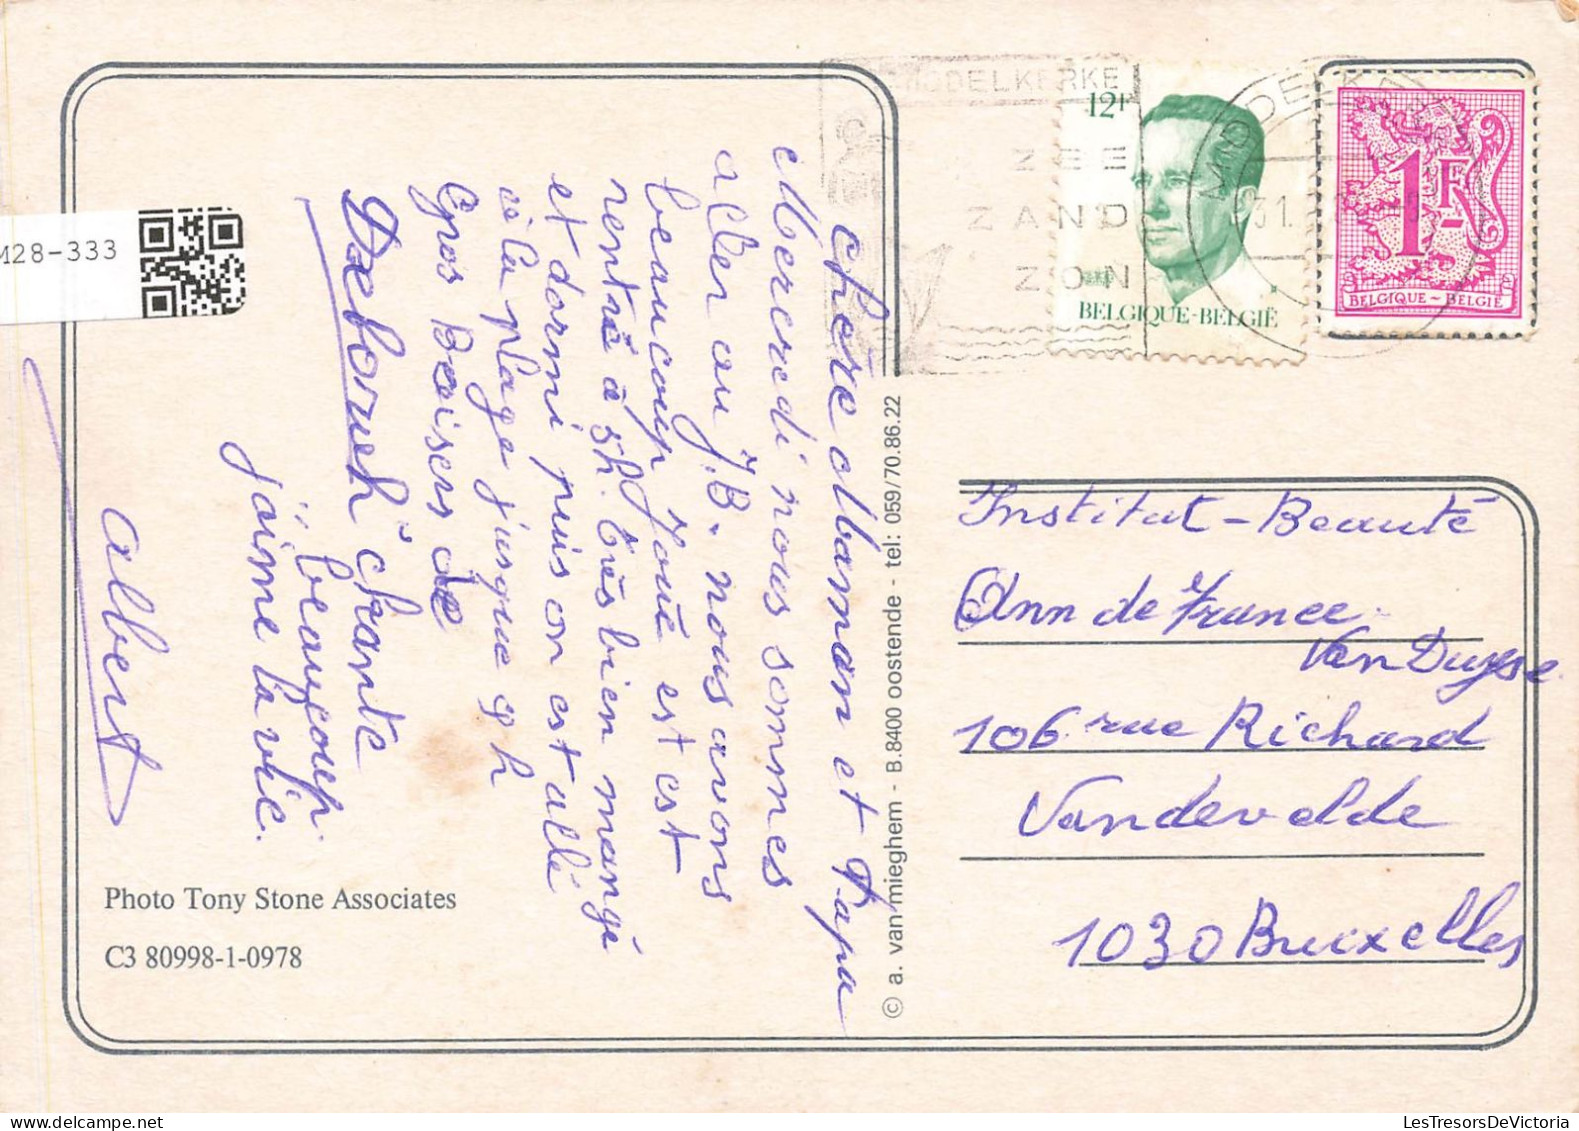 M28-333
MIDDELKERKE
ZEE
ZAND
ZON
12F
BELGIQUE-BELGIË
MIDDELKE
31.
1F
BELGIQUE ~ BELGIË
chère Maman et Papa
Mercredi nous sommes
aller au J.B. nous avons
beaucoup joué est est
rentré à 5h. très bien mangé
et dormi puis on est allé
à la plage jusque 9h
Gros Baisers de
Deborueh" chante
"beaucoup.
j'aime la vie.
Albert
Photo Tony Stone Associates
C3 80998-1-0978
© a. van mieghem - B.8400 oostende - tel: 059/70.86.22
Institut - Beauté
Ann de France
Van Duyse
106 rue Richard
Vandevelde
1030 Bruxelles
LesTresorsDeVictoria.com